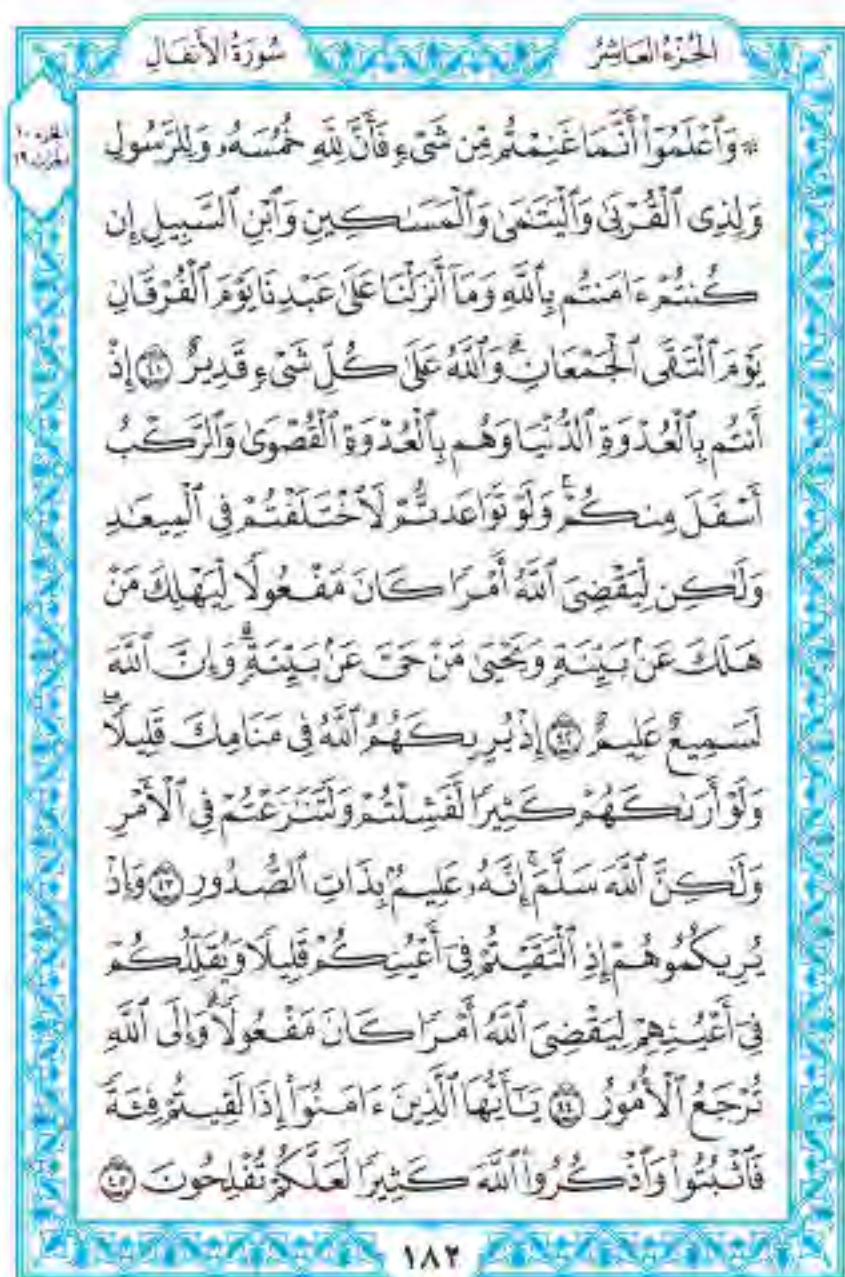 الجُزْءُ العَاشِرُ
سُورَةُ الأَنفَالِ
الجزء ١٠
الحزب ١٩
۞ وَٱعْلَمُوٓا۟ أَنَّمَا غَنِمْتُم مِّن شَىْءٍ فَأَنَّ لِلَّهِ خُمُسَهُۥ وَلِلرَّسُولِ
وَلِذِى ٱلْقُرْبَىٰ وَٱلْيَتَـٰمَىٰ وَٱلْمَسَـٰكِينِ وَٱبْنِ ٱلسَّبِيلِ إِن
كُنتُمْ ءَامَنتُم بِٱللَّهِ وَمَآ أَنزَلْنَا عَلَىٰ عَبْدِنَا يَوْمَ ٱلْفُرْقَانِ
يَوْمَ ٱلْتَقَى ٱلْجَمْعَانِ ۗ وَٱللَّهُ عَلَىٰ كُلِّ شَىْءٍ قَدِيرٌ ٤١ إِذْ
أَنتُم بِٱلْعُدْوَةِ ٱلدُّنْيَا وَهُم بِٱلْعُدْوَةِ ٱلْقُصْوَىٰ وَٱلرَّكْبُ
أَسْفَلَ مِنكُمْ ۚ وَلَوْ تَوَاعَدتُّمْ لَٱخْتَلَفْتُمْ فِى ٱلْمِيعَـٰدِ
وَلَـٰكِن لِّيَقْضِىَ ٱللَّهُ أَمْرًا كَانَ مَفْعُولًا لِّيَهْلِكَ مَنْ
هَلَكَ عَنۢ بَيِّنَةٍ وَيَحْيَىٰ مَنْ حَىَّ عَنۢ بَيِّنَةٍ ۗ وَإِنَّ ٱللَّهَ
لَسَمِيعٌ عَلِيمٌ ٤٢ إِذْ يُرِيكَهُمُ ٱللَّهُ فِى مَنَامِكَ قَلِيلًا ۖ
وَلَوْ أَرَىٰكَهُمْ كَثِيرًا لَّفَشِلْتُمْ وَلَتَنَـٰزَعْتُمْ فِى ٱلْأَمْرِ
وَلَـٰكِنَّ ٱللَّهَ سَلَّمَ ۗ إِنَّهُۥ عَلِيمٌۢ بِذَاتِ ٱلصُّدُورِ ٤٣ وَإِذْ
يُرِيكُمُوهُمْ إِذِ ٱلْتَقَيْتُمْ فِىٓ أَعْيُنِكُمْ قَلِيلًا وَيُقَلِّلُكُمْ
فِىٓ أَعْيُنِهِمْ لِيَقْضِىَ ٱللَّهُ أَمْرًا كَانَ مَفْعُولًا ۗ وَإِلَى ٱللَّهِ
تُرْجَعُ ٱلْأُمُورُ ٤٤ يَـٰٓأَيُّهَا ٱلَّذِينَ ءَامَنُوٓا۟ إِذَا لَقِيتُمْ فِئَةً
فَٱثْبُتُوا۟ وَٱذْكُرُوا۟ ٱللَّهَ كَثِيرًا لَّعَلَّكُمْ تُفْلِحُونَ ٤٥
١٨٢